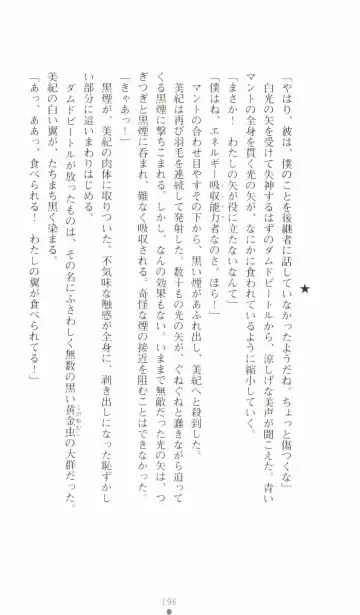 ★
「やはり、彼は、僕のことを後継者に話していなかったようだね。ちょっと傷つくな」
白光の矢を受けて失神するはずのダムドビートルから、涼しげな美声が聞こえた。青い
マントの全身を貫く光の矢が、なにかに食われているように縮小していく。
「まさか！　わたしの矢が役に立たないなんて」
「僕はね、エネルギー吸収能力者なのさ。ほら！」
マントの合わせ目やすその下から、黒い煙があふれ出し、美紀へと殺到した。
美紀は再び羽毛を連続して発射した。数十もの光の矢が、ぐねぐねと蠢きながら迫って
くる黒煙に撃ちこまれる。しかし、なんの効果もない。いままで無敵だった光の矢は、つ
ぎつぎと黒煙に呑まれ、難なく吸収される。奇怪な煙の接近を阻むことはできなかった。
「きゃあっ！」
黒煙が、美紀の肉体に取りついた。不気味な触感が全身に、剥き出しになった恥ずかし
い部分に這いまわりはじめる。
ダムドビートルが放ったものは、その名にふさわしく無数の黒い黄金虫の大群だった。
こがねむし
美紀の白い翼が、たちまち黒く染まる。
「あっ、ああっ、食べられる！　わたしの翼が食べられてる！」
196